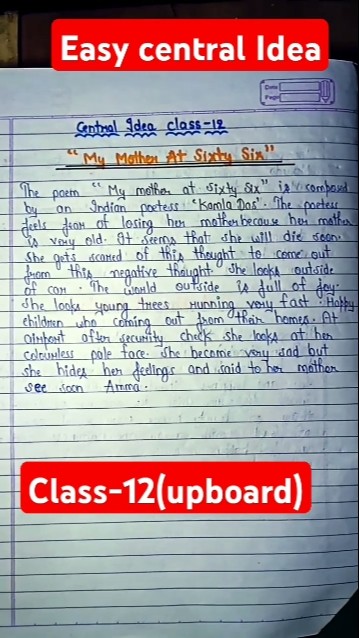 Easy central Idea
Date
Page
Central Idea class-12
"My Mother At Sixty Six"
The poem "My mother at sixty six" is composed
by an Indian poetess 'Kamla Das'. The poetess
feels fear of losing her mother because her mother
is very old. It seems that she will die soon.
She gets scared of this thought to come out
from this negative thought she looks outside
of car. The world outside is full of joy.
She looks young trees running very fast. Happy
children who coming out from their homes. At
airport after security check she looks at her
colourless pale face. She become very sad but
she hides her feelings and said to her mother
see soon Amma.
Class-12(upboard)